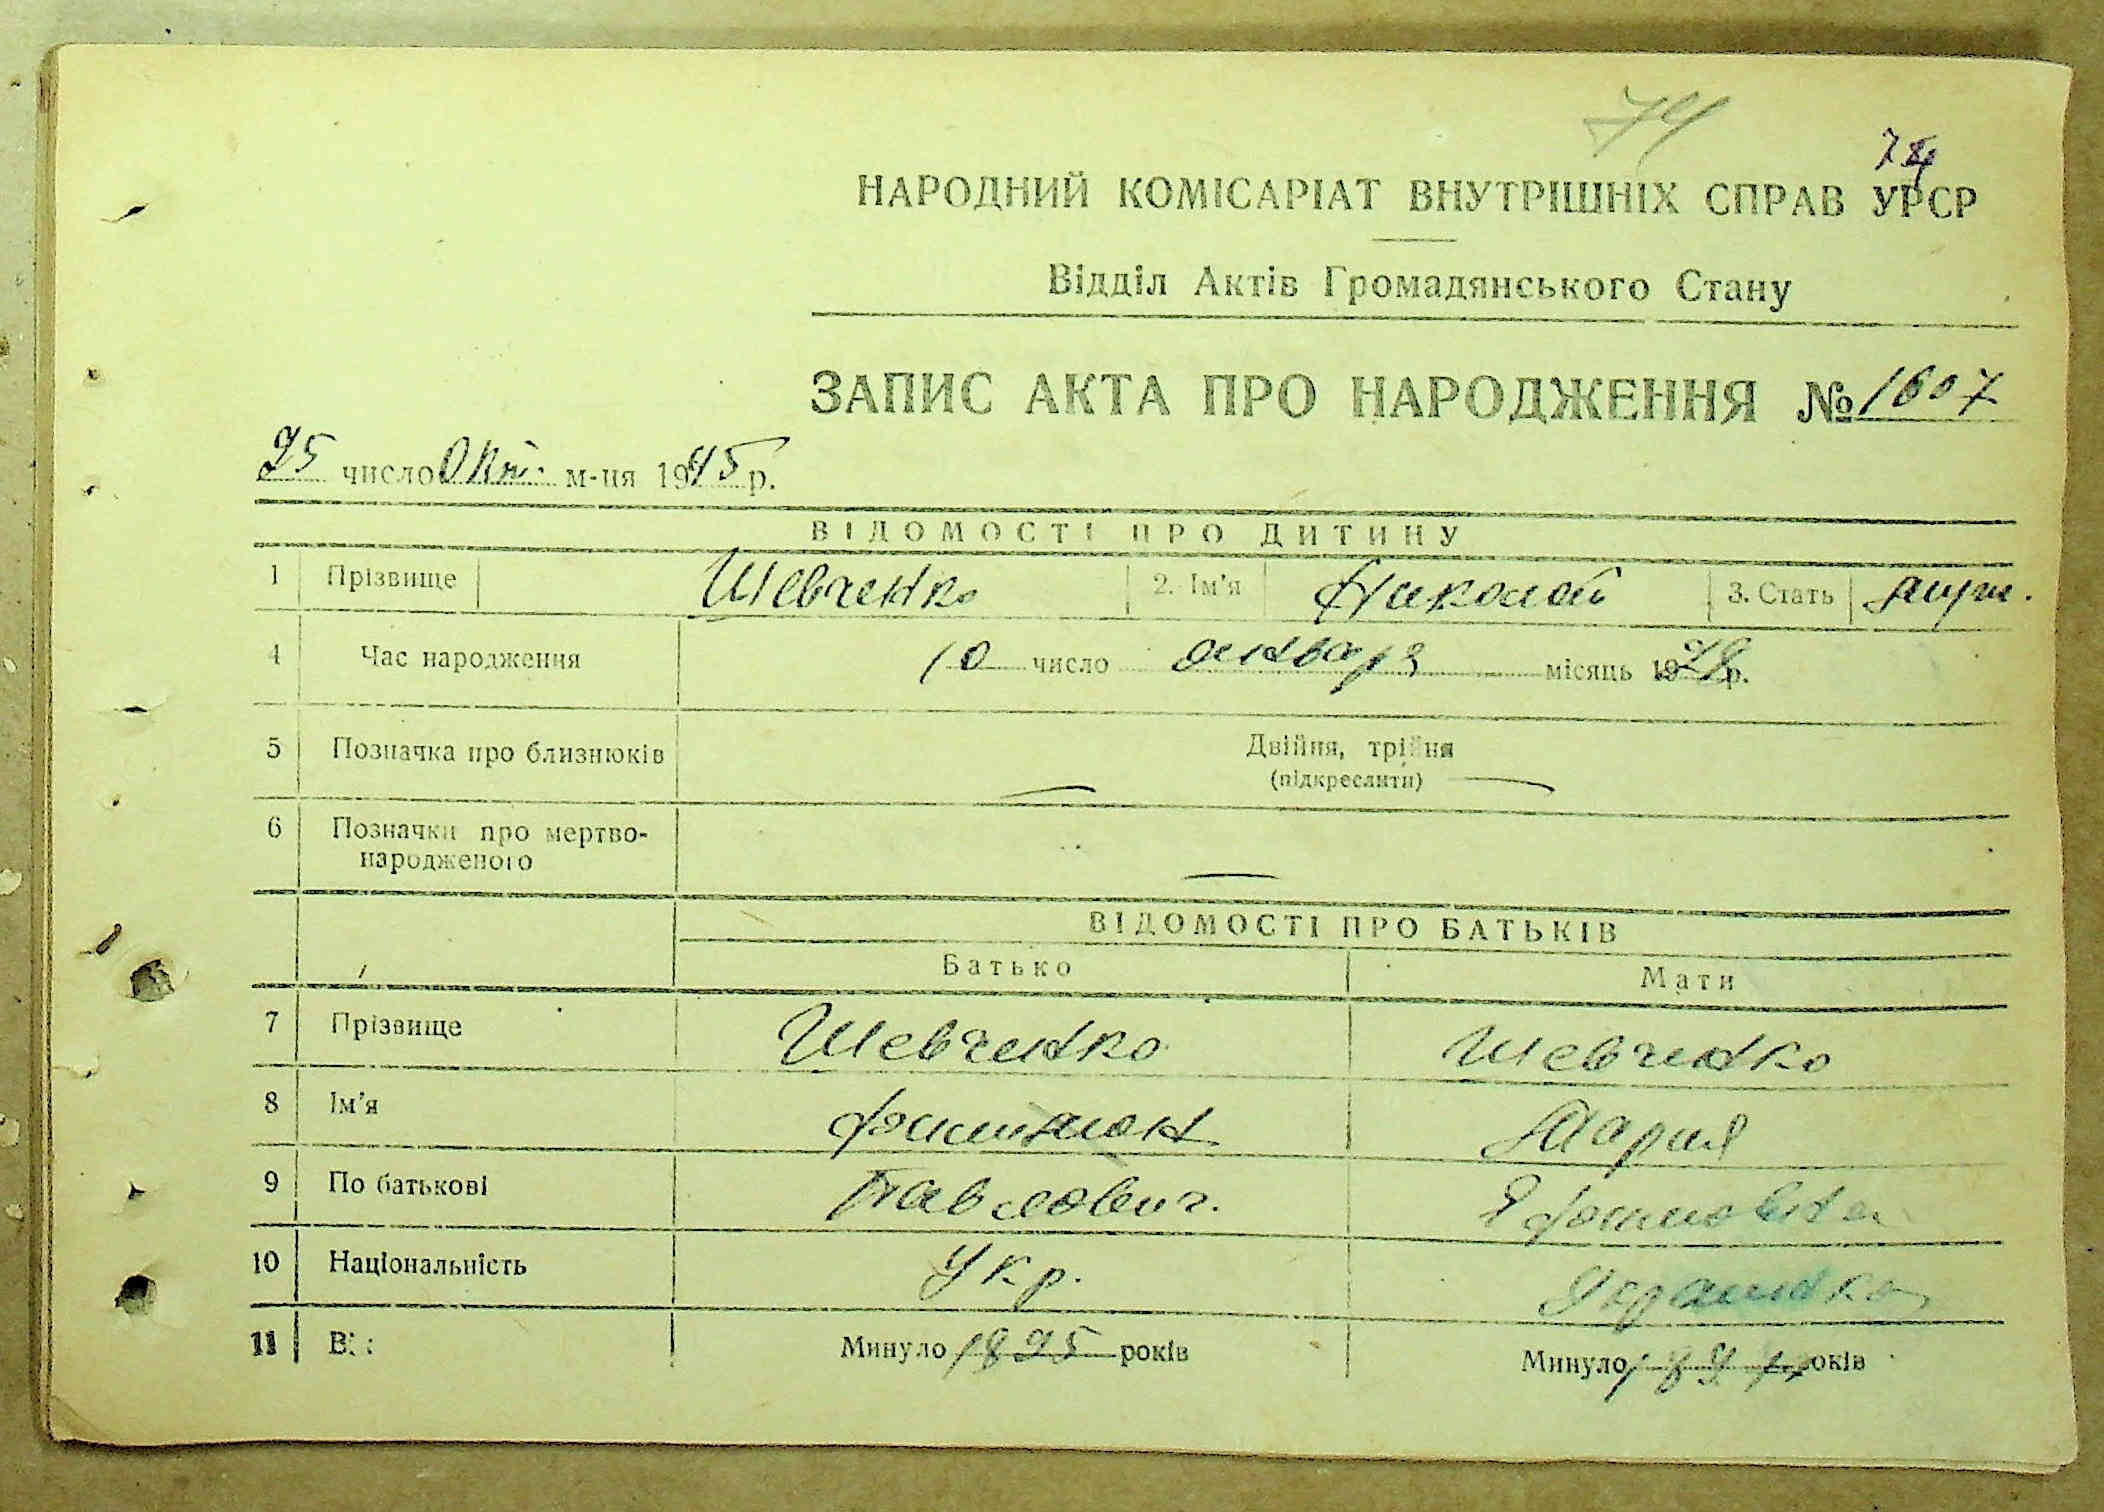 74
74
НАРОДНИЙ КОМІСАРІАТ ВНУТРІШНІХ СПРАВ УРСР
Відділ Актів Громадянського Стану
ЗАПИС АКТА ПРО НАРОДЖЕННЯ № 1607
25 число Окт. м-ця 1945 р.
ВІДОМОСТІ ПРО ДИТИНУ
1 Прізвище Шевченко 2. Ім'я Николай 3. Стать муж.
4 Час народження 10 число января місяць 19 р.
5 Позначка про близнюків Двійня, трійня
(підкреслити)
6 Позначки про мертво-
народженого
ВІДОМОСТІ ПРО БАТЬКІВ
Батько Мати
7 Прізвище Шевченко Шевченко
8 Ім'я Мария
9 По батькові Павлович.
10 Національність Укр. Украинка
11 Минуло 1895 років Минуло років